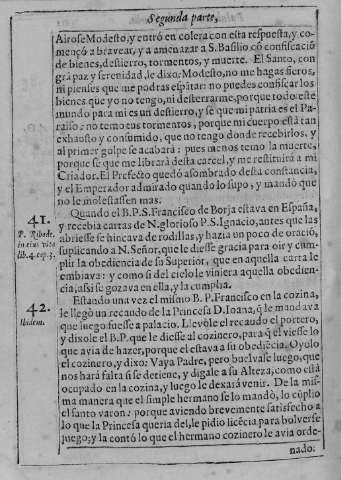 Segunda parte,
Airose Modesto, y entró en colera con esta respuesta, y co-
mençó a bravear, y a amenazar a S. Basilio cõ confiscació
de bienes, destierro, tormentos, y muerte. El Santo, con
grã paz y serenidad, le dixo: Modesto, no me hagas fieros,
ni pienses que me podras espãtar: no puedes confiscar los
bienes que yo no tengo, ni desterrarme, porque todo este
mundo para mi es un destierro, y sè que mi patria es el Pa-
raiso: no temo tus tormentos, porque mi cuerpo està tan
exhausto y consumido, que no tengo donde recebirlos, y
al primer golpe se acabarà: pues menos temo la muerte,
porque se que me librarà desta carcel, y me restituirà a mi
Criador. El Prefecto quedó asombrado desta constancia,
y el Emperador admirado quando lo supo, y mandó que
no le molestassen mas.
41.
P. Ribade.
in eius vita
lib. 4. cap. 3.
Quando el B. P. S. Francisco de Borja estava en España,
y recebia cartas de N. glorioso P. S. Ignacio, antes que las
abriesse se hincava de rodillas, y hazia un poco de oració,
suplicando a N. Señor, que le diesse gracia para oir y cum-
plir la obediencia de su Superior, que en aquella carta le
embiava: y como si del cielo le viniera aquella obedien-
cia, assi se gozava en ella, y la cumplia.
42.
Ibidem.
Estando una vez el mismo B. P. Francisco en la cozina,
le llegò un recaudo de la Princesa D. Ioana, q̃ le mandava
que luego fuesse a palacio. Llevòle el recaudo el portero,
y dixole el B. P. que le diesse al cozinero, para q̃ el viesse lo
que avia de hazer, porque el estava a su obediẽcia. Oyolo
el cozinero, y dixo: Vaya Padre, pero buelvase luego, que
nos harà falta si se detiene, y digale a su Alteza, como està
ocupado en la cozina, y luego le dexarà venir. De la mis-
ma manera que el simple hermano se lo mandò, lo cũplio
el santo varon: porque aviendo brevemente satisfecho a
lo que la Princesa queria del, le pidio licẽcia para bolverse
luego; y la contó lo que el hermano cozinero le avia orde-
nado: